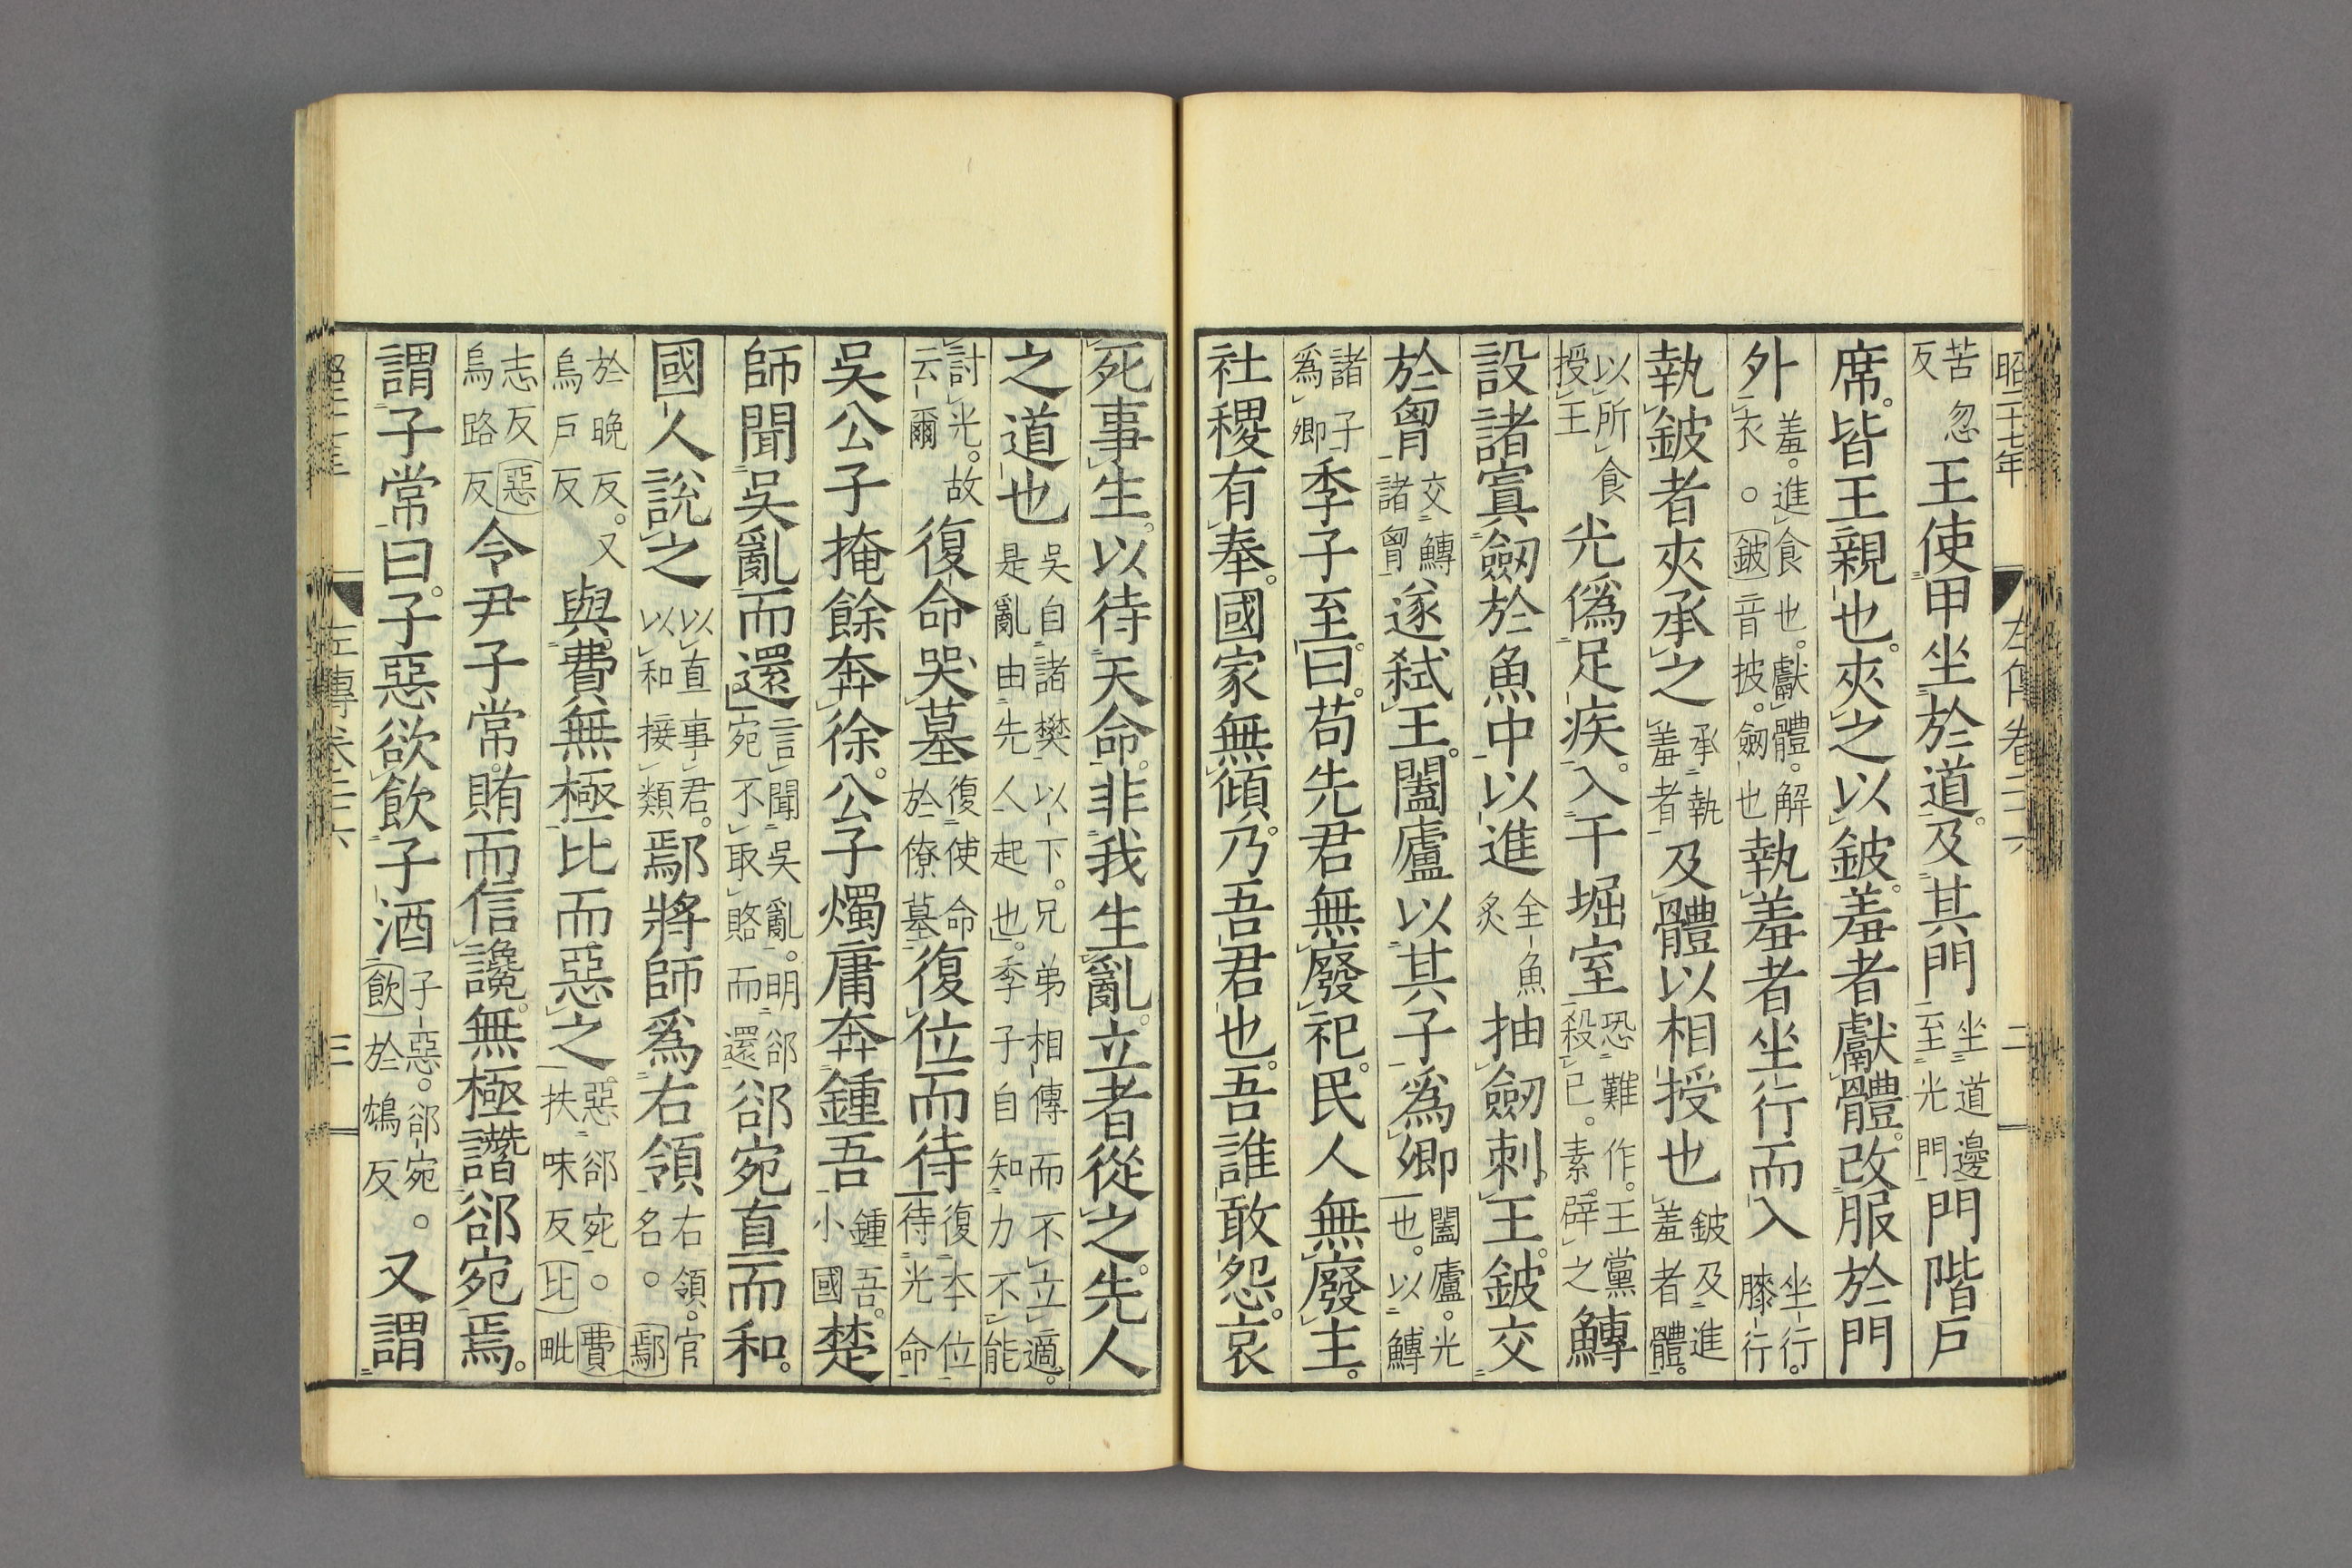 昭二十七年 左傳卷二十六 二
苦忽反王使甲坐於道。及其門坐道邊至光門門階戶
席。皆王親也。夾之以鈹。羞者獻體。改服於門
外羞。進食也。獻體。解衣。鈹音披。劔也執羞者坐行而入坐行。膝行
執鈹者夾承之承執羞者及體以相授也鈹及進羞者體。
以所食授王光僞足疾。入于堀室恐難作。王黨殺己。素辟之鱄
設諸寘劔於魚中以進全魚炙抽劔刺王。鈹交
於胷交鱄諸胷遂弑王。闔廬以其子爲卿闔廬。光也。以鱄
諸子爲卿季子至。曰。苟先君無廢祀。民人無廢主。
社稷有奉。國家無傾。乃吾君也。吾誰敢怨。哀
死事生。以待天命。非我生亂。立者從之。先人
之道也吳自諸樊以下。兄弟相傳而不立適。是亂由先人起也。季子自知力不能
討光。故云爾復命哭墓復使命於僚墓復位而待復本位待光命
吳公子掩餘奔徐。公子燭庸奔鍾吾鍾吾。小國楚
師聞吳亂而還言聞吳亂。明郤宛不取賂而還郤宛直而和。
國人說之以直事君。以和接類鄢將師爲右領右領。官名。鄢
於晚反。又烏戶反與費無極比而惡之惡郤宛。費扶味反。比毗
志反惡烏路反令尹子常。賄而信讒。無極譖郤宛焉。
謂子常曰。子惡欲飲子酒子惡。郤宛。飲於鴆反又謂
昭二十七年 左傳卷二十六 三